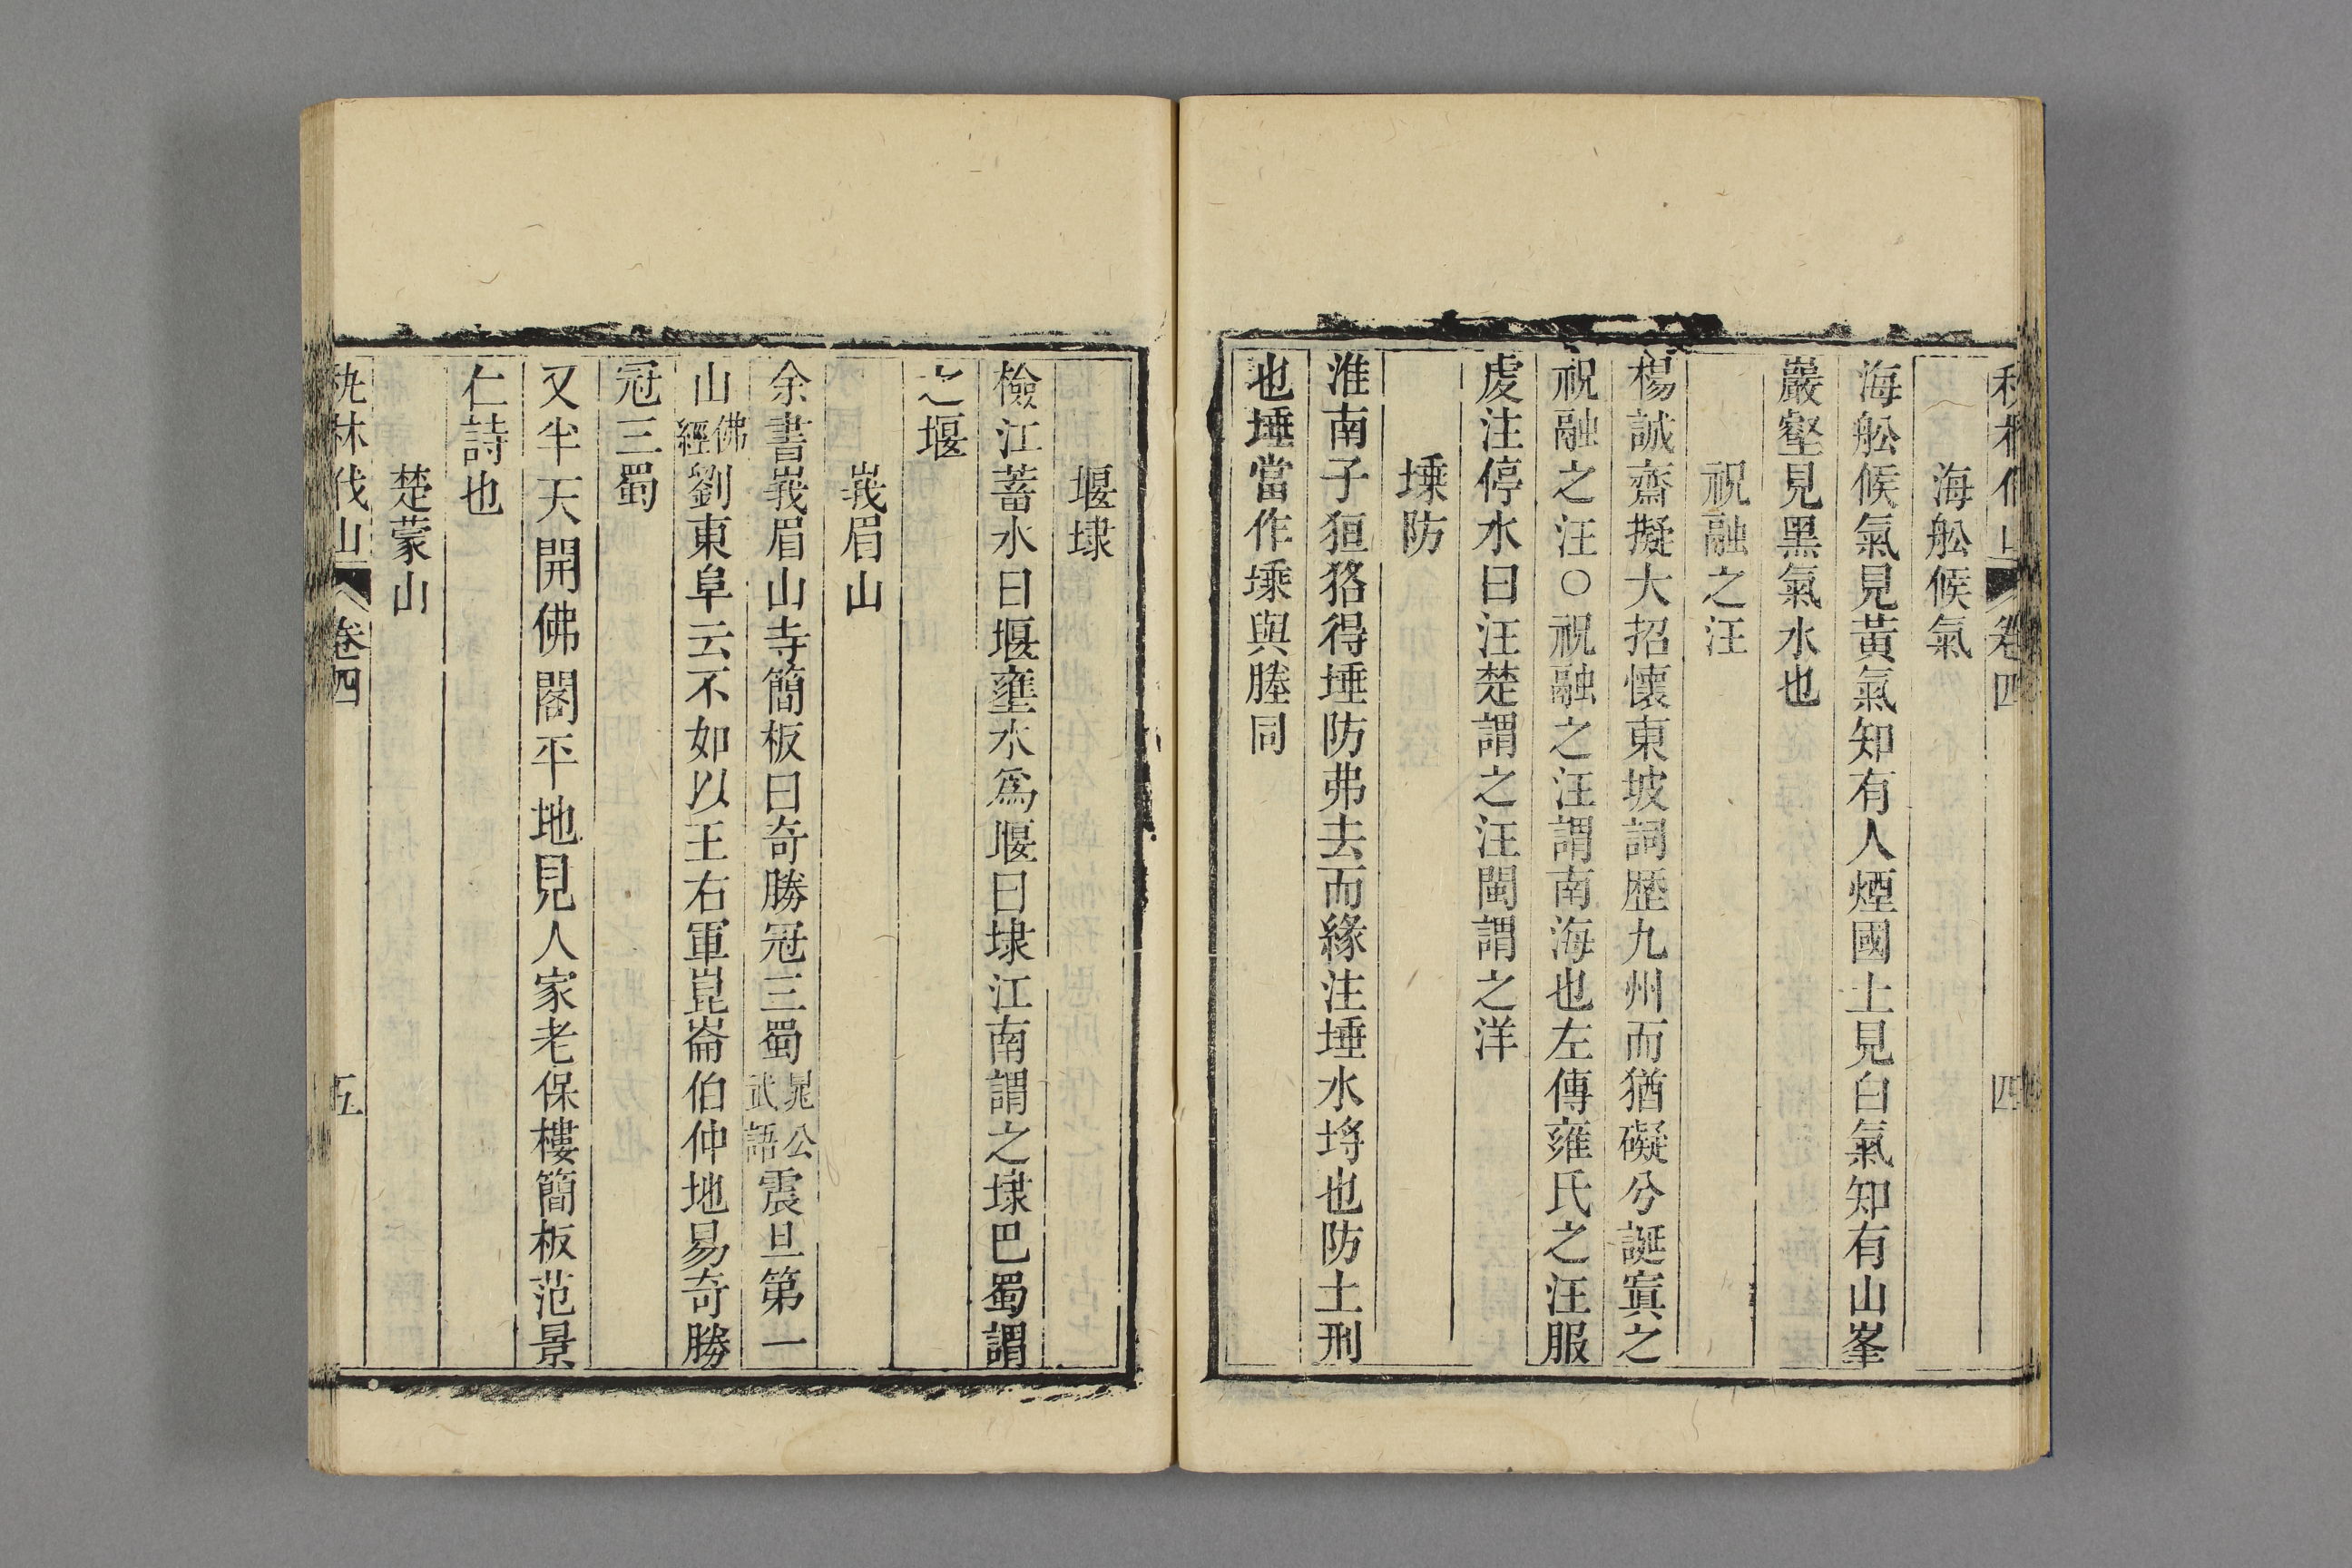 卷四 四
海舩候氣
海舩候氣見黃氣知有人煙國土見白氣知有山峯
巖壑見黑氣水也
祝融之汪
楊誠齋擬大招懷東坡詞歷九州而猶礙兮誕寘之
祝融之汪○祝融之汪謂南海也左傳雍氏之汪服
虔注停水曰汪楚謂之汪閩謂之洋
堘防
淮南子狟狢得埵防弗去而緣注埵水埒也防土刑
也埵當作堘與塍同
堰埭
檢江蓄水曰堰壅水爲堰曰埭江南謂之埭巴蜀謂
之堰
峩眉山
余書峩眉山寺簡板曰奇勝冠三蜀晁公武語震旦第一
山佛經劉東阜云不如以王右軍崑崙伯仲地易奇勝
冠三蜀
又半天開佛閣平地見人家老保樓簡板范景
仁詩也
楚蒙山
林伐山 卷四 五